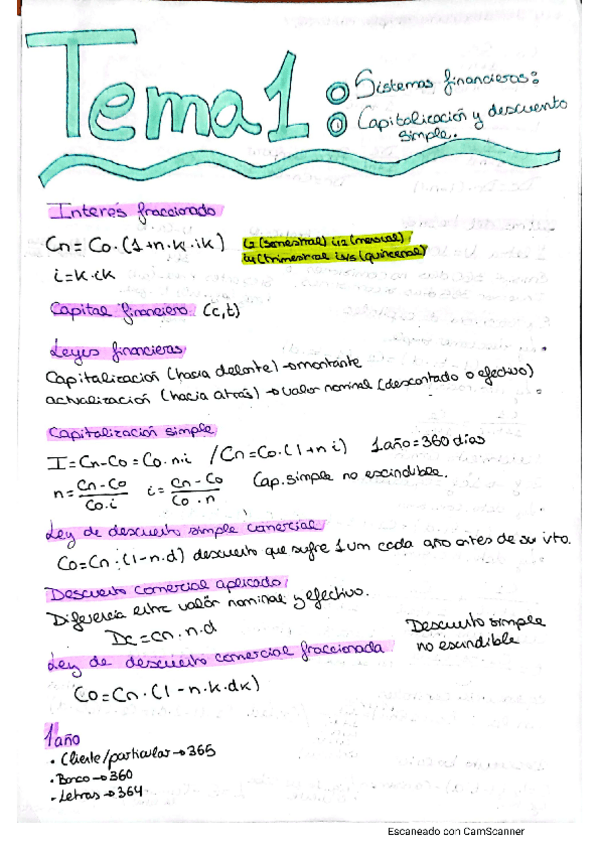 Tema 1
Sistemas financieros:
Capitalización y descuento
simple.
Interés fraccionado
Cn = Co. (1+n.k.ik)
i2 (semestral) i12 (mensual)
i4 (trimestral
(quincenal)
i = k.ik
Capital financiero (c,t)
Leyes financieras
Capitalización (hacia delante) → montante
actualización (hacia atrás) → valor nominal (descontado o efectivo)
Capitalización simple
I = Cn-Co = Co.n.i / Cn = Co.(1+n i) 1 año = 360 días
n = Cn - Co / Co.i i = Cn - Co / Co.n Cap. simple no escindible.
Ley de descuento simple comercial
Co = Cn.(1-n.d) descuento que sufre 1 um cada año antes de su vto.
Descuento comercial aplicado
Diferencia entre valor nominal y efectivo.
Dc = cn.n.d
Descuento simple
no escindible
Ley de descuento comercial fraccionada
Co = Cn.(1-n.k.dk)
1 año
• Cliente/particular → 365
• Banco → 360
• Letras → 364
Escaneado con CamScanner